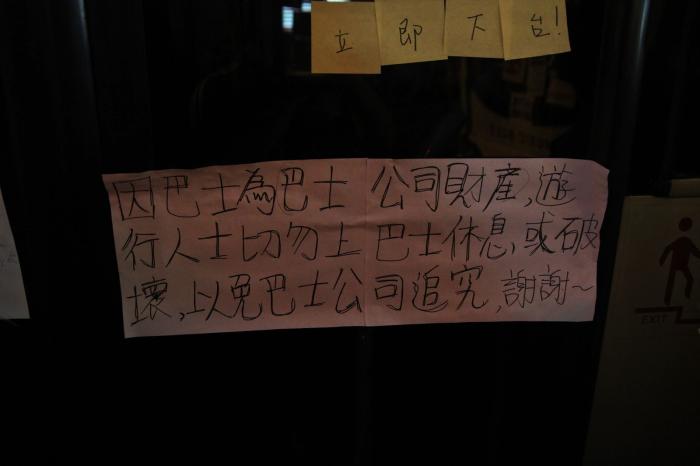 立即下台!
因巴士為巴士公司財產,遊
行人士切勿上巴士休息,或破
壞,以免巴士公司追究,謝謝~
EXIT